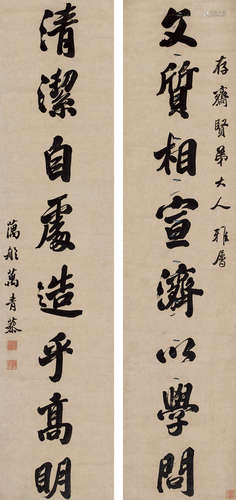 存齋賢弟大人雅屬
文質相宣濟以學問
清潔自處造乎髙明
藕舲萬青藜